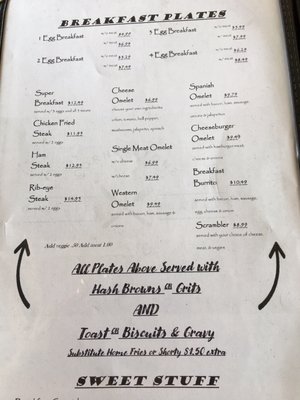 BREAKFAST PLATES
1 Egg Breakfast
w/o meat $4.99
w/ meat $6.99
3 Egg Breakfast
w/o meat $5.99
w/ meat $7.99
2 Egg Breakfast
w/o meat $5.29
w/ meat $7.49
4 Egg Breakfast
w/o meat $6.29
w/ meat $8.49
Super
Breakfast $12.49
Chicken Fried
Steak $11.99
served w/ 2 eggs
Ham
Steak $12.99
served w/ 2 eggs
Rib-eye
Steak $14.99
served w/ 2 eggs
Cheese
Omelet $6.99
mushrooms, jalapeño, spinach
Single Meat Omelet
w/o cheese $6.99
w/cheese $7.49
Western
Omelet $9.49
served with bacon, ham, sausage,
onions
Spanish
Omelet $9.79
served with bacon, ham, sausage,
Cheeseburger
Omelet $9.49
served with hamburger meat,
cheese & onions
Breakfast
Burrito $10.49
served with bacon, ham, sausage,
egg, cheese & onion
Scrambler $8.99
served with your choice of cheese,
meat, & veggies
Add veggie .50 Add meat 1.00
All Plates Above Served with
Hash Browns or Grits
AND
Toast or Biscuits & Gravy
Substitute Home Fries or Shorty $1.50 extra
SWEET STUFF